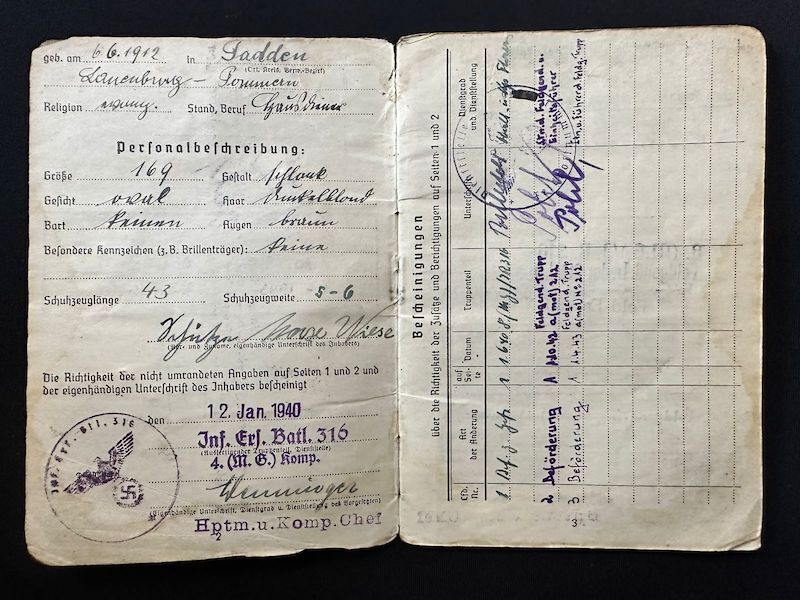 geb. am 6.6.1912 in Sadden
(Ort, Kreis, Verw.-Bezirk)
Lauenburg – Pommern
Religion evang. Stand, Beruf Hausdiener
Personalbeschreibung:
Größe 169 Gestalt schlank
Gesicht oval Haar dunkelblond
Bart keinen Augen braun
Besondere Kennzeichen (z. B. Brillenträger): keine
Schuhzeuglänge 43 Schuhzeugweite 5-6
Schütze Wiese
(Vor- und Zuname, eigenhändige Unterschrift des Inhabers)
Die Richtigkeit der nicht umrandeten Angaben auf Seiten 1 und 2 und
der eigenhändigen Unterschrift des Inhabers bescheinigt
den 12. Jan. 1940
Inf. Ers. Batl. 316
(Ausfertigender Truppenteil, Dienststelle)
4. (M. G.) Komp.
(Eigenhändige Unterschrift, Dienstgrad u. Dienststellung des Vorgesetzten)
Hptm. u. Komp. Chef
2
Inf. Ers. Btl. 316
Bescheinigungen
über die Richtigkeit der Zusätze und Berichtigungen auf Seiten 1 und 2
Lfd. Nr. Art der Änderung auf Seite Datum Truppenteil Unterschrift Dienstgrad und Dienststellung
1 Bef. z. 1
2 Beförderung 1 1.10.42 Feldgend. Trupp a (mot) 212 Stm. d. Feldgend. u. Einheitsführer
3 Beförderung 1 1.4.43 Feldgend. Trupp a (mot) 212
3